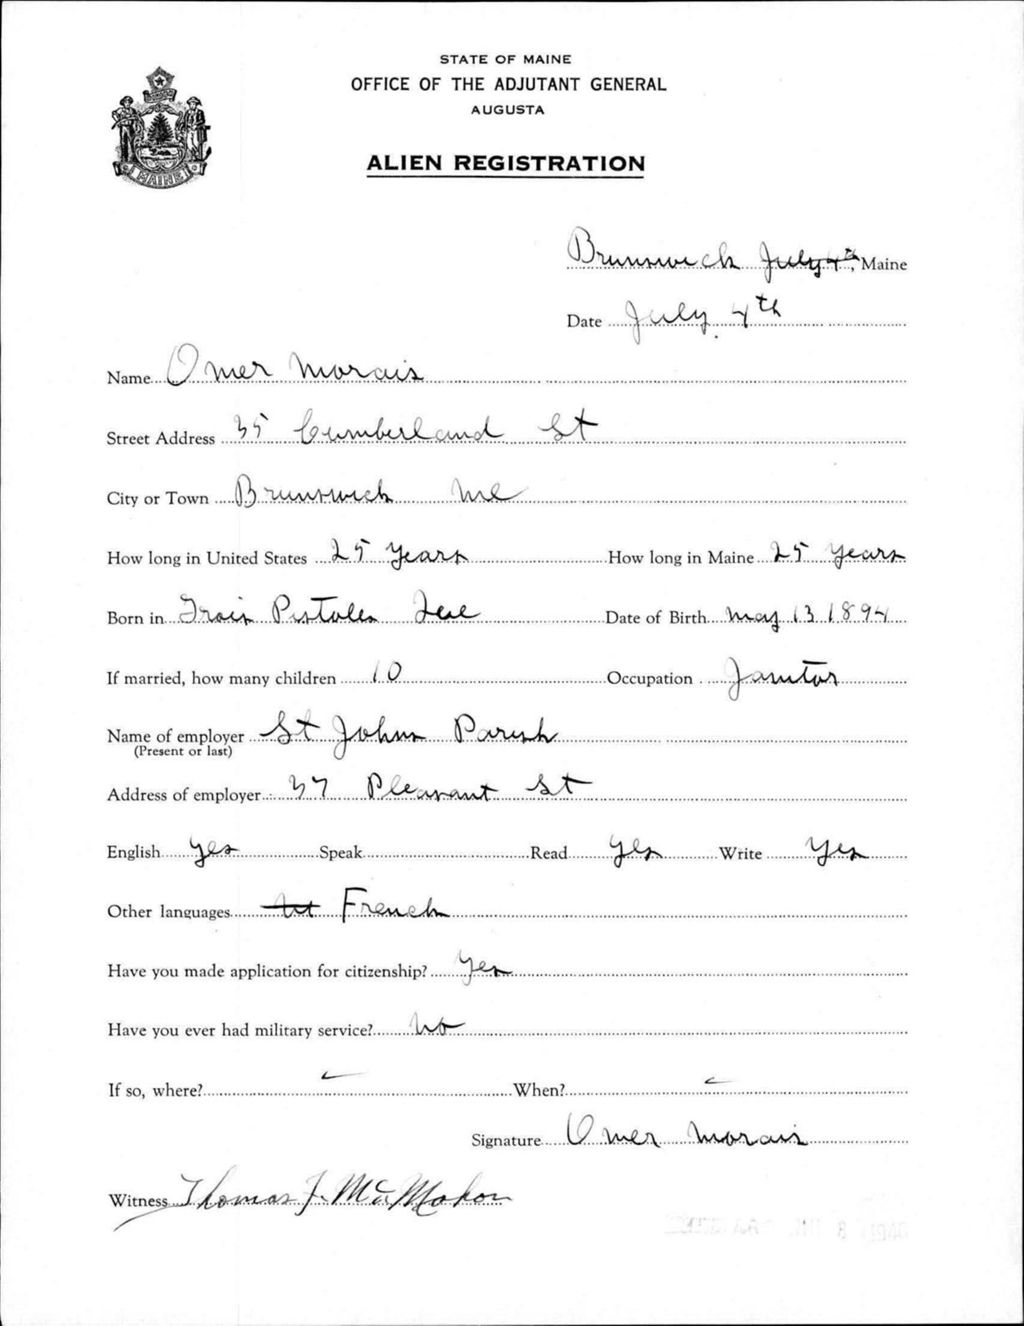 STATE OF MAINE
OFFICE OF THE ADJUTANT GENERAL
AUGUSTA
MAINE
ALIEN REGISTRATION
Brunswick July 4th, Maine
Date July 4th
Name Omer Morais
Street Address 35 Cumberland St
City or Town Brunswick Me
How long in United States 25 Years How long in Maine 25 Years
Born in Trois Pistoles Date of Birth May 13 1894
If married, how many children 10 Occupation Janitor
Name of employer St Johns Parish
(Present or last)
Address of employer 37 Pleasant St
English Yes Speak Read Yes Write Yes
Other languages French
Have you made application for citizenship? Yes
Have you ever had military service? No
If so, where? When?
Signature Omer Morais
Witness Thomas J. McMahon